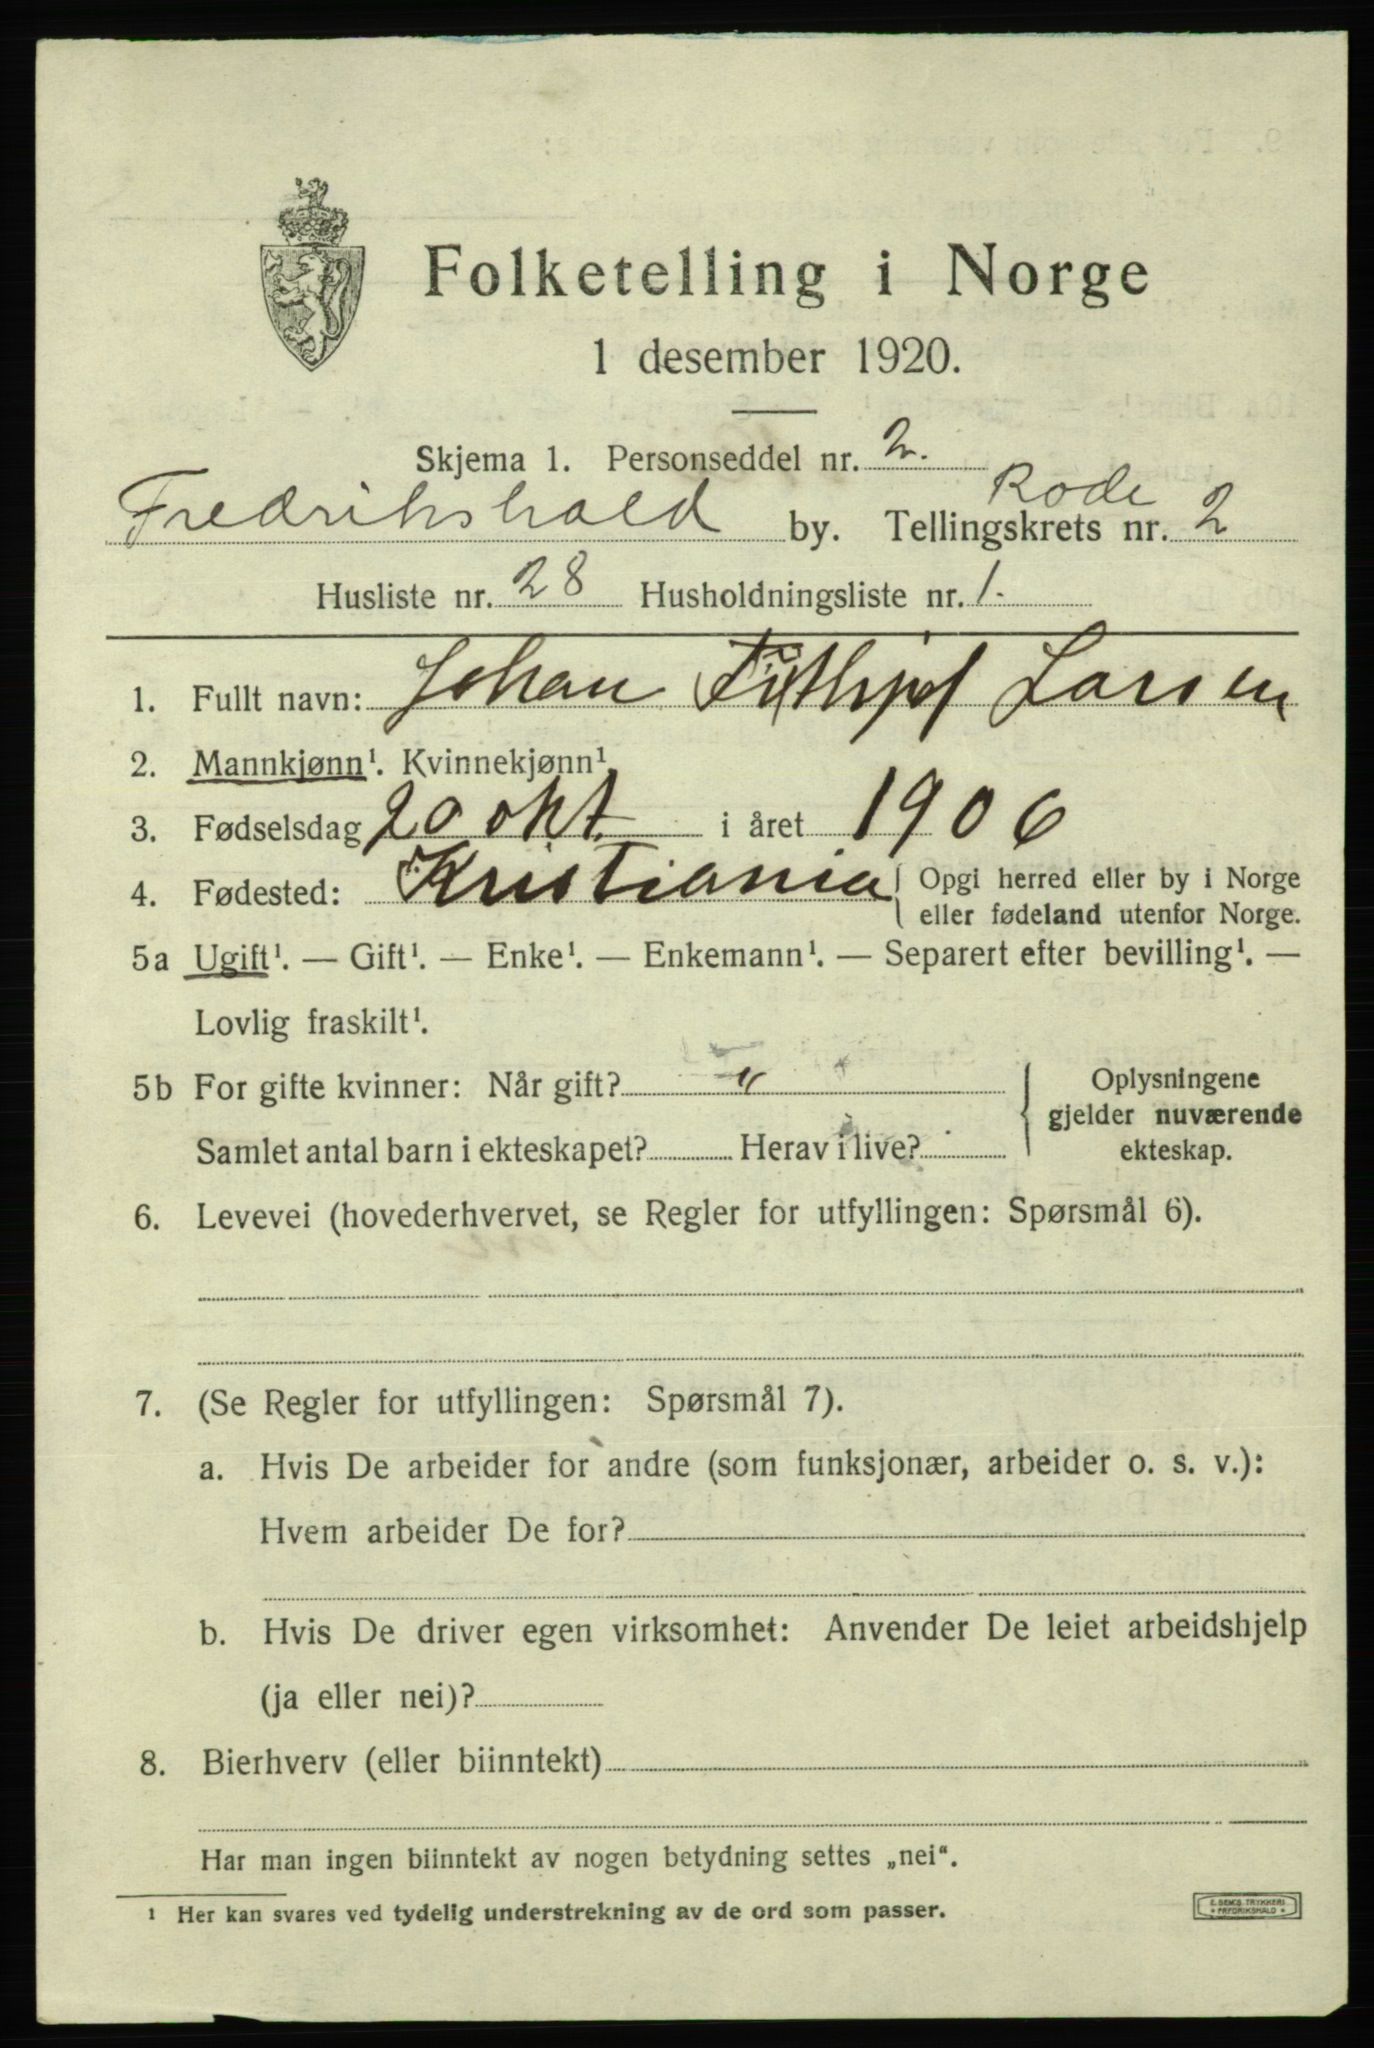 Folketelling i Norge
1 desember 1920.
Skjema 1. Personseddel nr. 2.
Fredrikshald by. Tellingskrets nr. Rode 2
Husliste nr. 28 Husholdningsliste nr. 1.
1. Fullt navn: Johan Frithjof Larsen
2. Mannkjønn¹. Kvinnekjønn¹.
3. Fødselsdag 20 okt. i året 1906
4. Fødested: Kristiania { Opgi herred eller by i Norge
eller fødeland utenfor Norge.
5a Ugift¹. — Gift¹. — Enke¹. — Enkemann¹. — Separert efter bevilling¹. —
Lovlig fraskilt¹.
5b For gifte kvinner: Når gift? "
Samlet antal barn i ekteskapet? Herav i live?
} Oplysningene
gjelder nuværende
ekteskap.
6. Levevei (hovederhvervet, se Regler for utfyllingen: Spørsmål 6).
7. (Se Regler for utfyllingen: Spørsmål 7).
a. Hvis De arbeider for andre (som funksjonær, arbeider o. s. v.):
Hvem arbeider De for?
b. Hvis De driver egen virksomhet: Anvender De leiet arbeidshjelp
(ja eller nei)?
8. Bierhverv (eller biinntekt)
Har man ingen biinntekt av nogen betydning settes „nei“.
¹ Her kan svares ved tydelig understrekning av de ord som passer.
TRYKKERI
FREDRIKSHALD